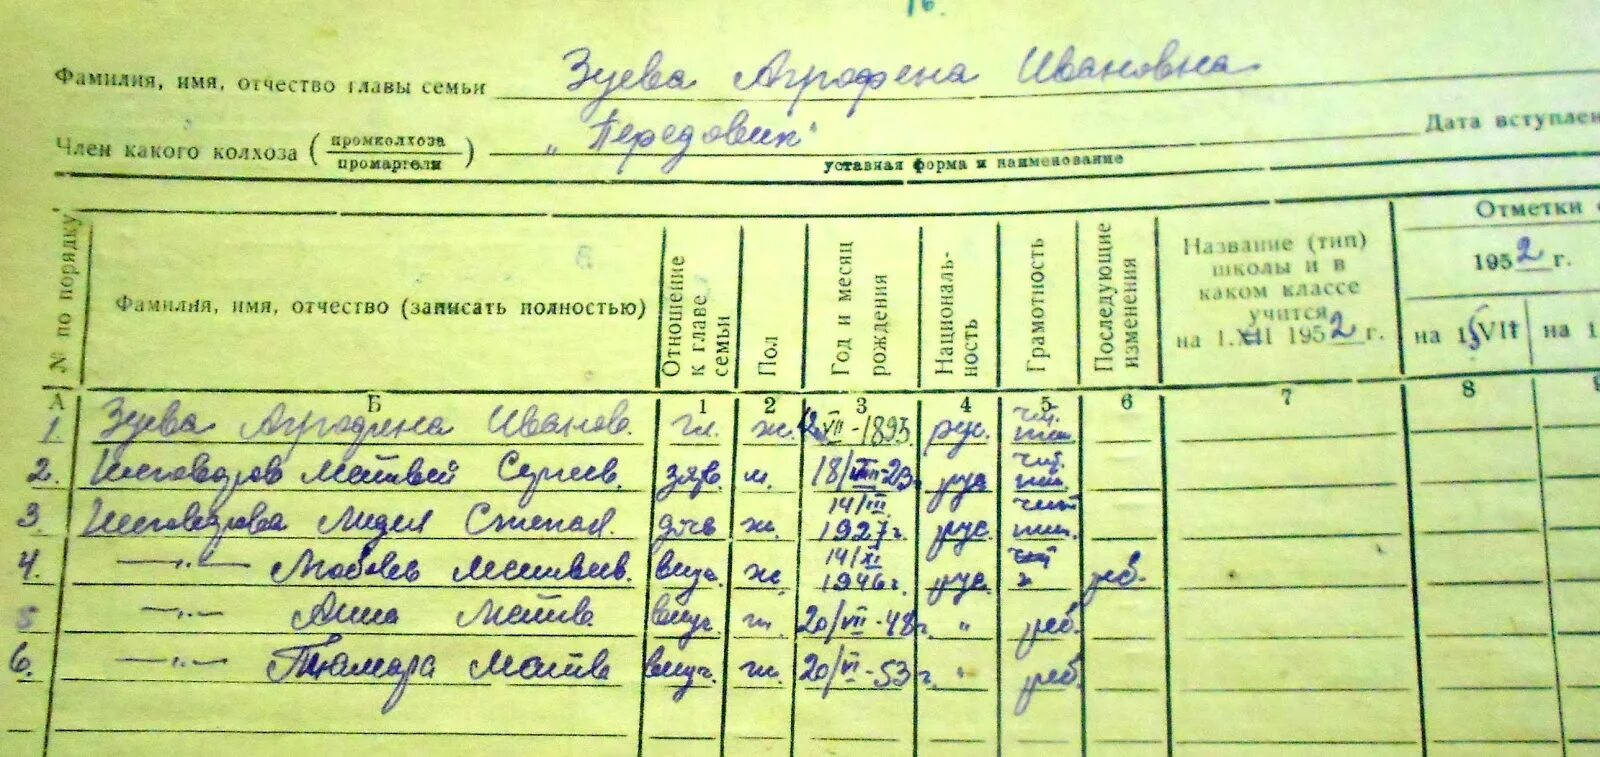 16.
Фамилия, имя, отчество главы семьи Зуева Агрофена Ивановна
Член какого колхоза (промколхоза промартели) „Передовик“ Дата вступлен
уставная форма и наименование
№ по порядку Фамилия, имя, отчество (записать полностью) Отношение к главе семьи Пол Год и месяц рождения Национальность Грамотность Последующие изменения Название (тип) школы и в каком классе учится на 1.XII 1952 г. Отметки
1952 г.
на 15 VII на 1
А Б 1 2 3 4 5 6 7 8
1. Зуева Агрофена Иванов. гл. ж. VII-1893 рус. чит. пис.
2. Матвей Сергеев. зять м. рус чит. пис.
3. Лидия Степан. дочь ж. 14/III 1927г. рус. чит пис.
4. —„— Любовь Матвеев. внуч. ж. 14/XI 1946г. рус. реб.
5 —„— Анна Матве внуч. ж. 20/VII-48г. „ реб.
6. —„— Тамара Матве внуч. ж. 20/VI-53г. „ реб.